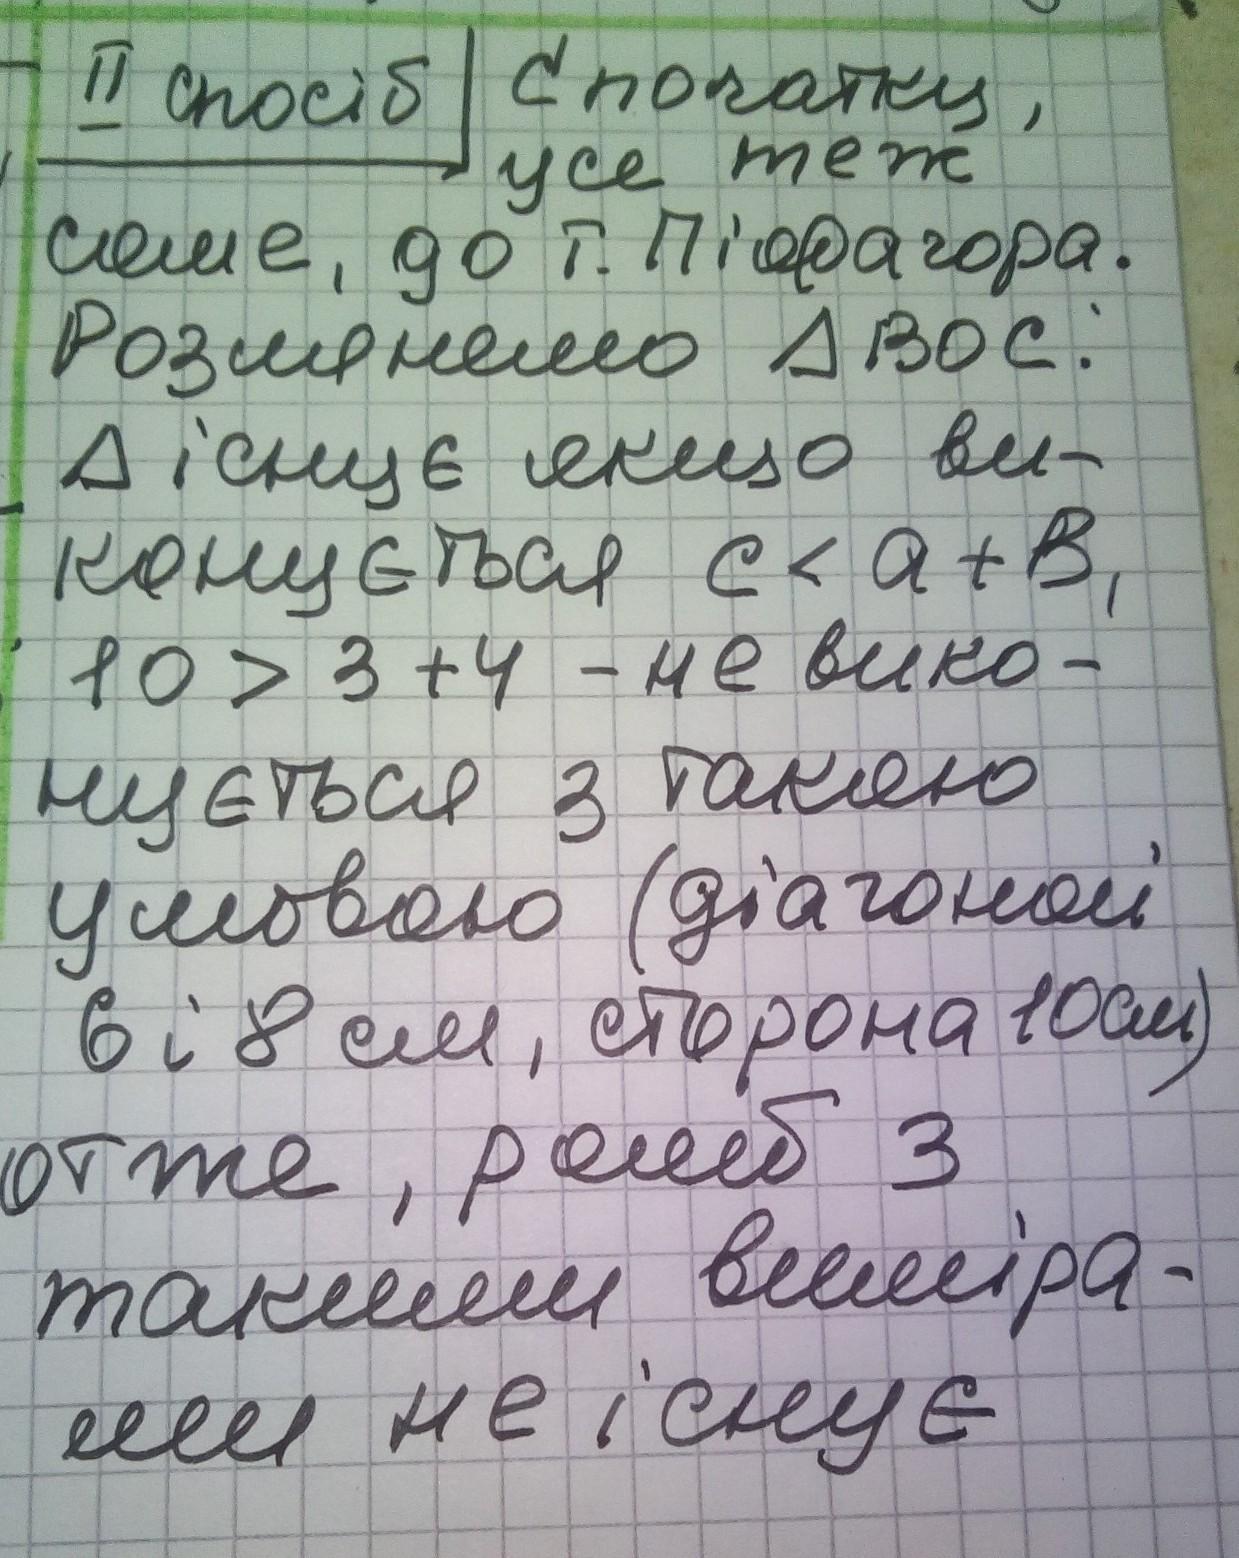 II спосіб
Спочатку,
усе теж
саме, до т. Піфагора.
Розглянемо ΔBOC:
Δ існує якщо ви-
конується c < a + b,
10 > 3 + 4 - не вико-
нується з такою
умовою (діагоналі
6 і 8 см, сторона 10см)
отже, ромб з
такими виміра-
ми не існує